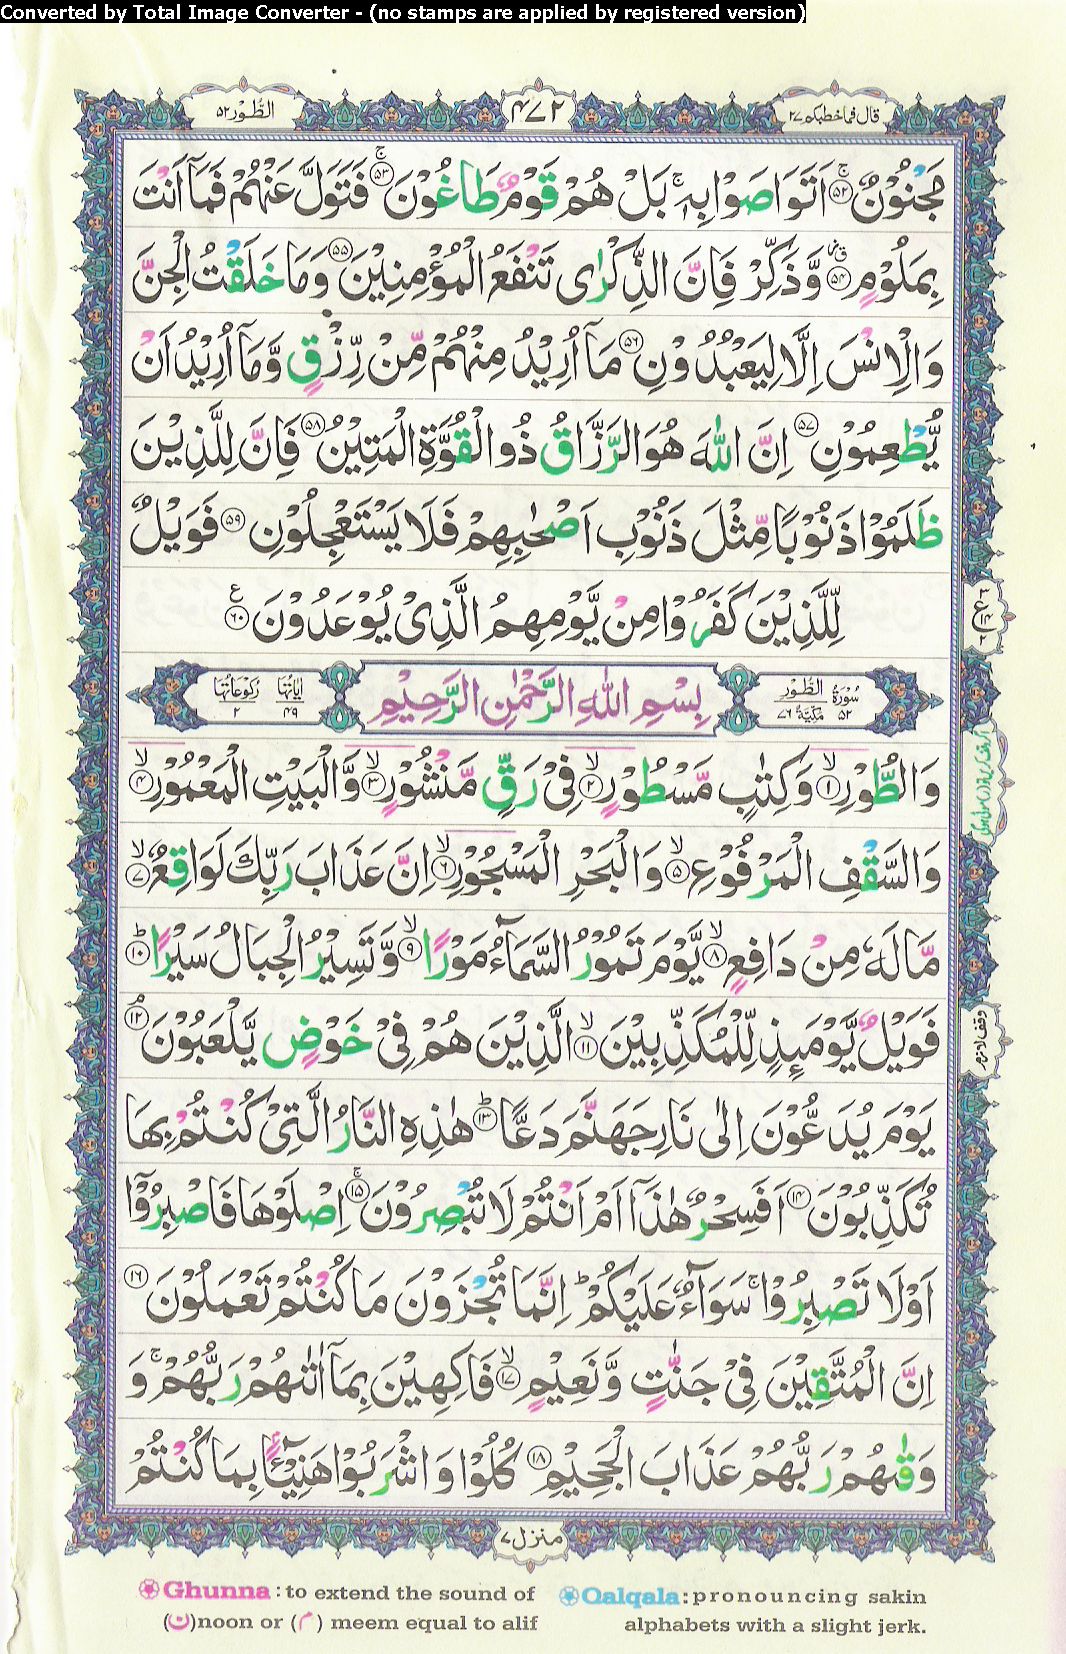 Converted by Total Image Converter - (no stamps are applied by registered version)
قال فما خطبكم ٢٧
٤٧٢
الطُّوْر ٥٢
مَجْنُوْنٌ ﴿٥٢﴾ۚ اَتَوَاصَوْا بِهٖ ۚ بَلْ هُمْ قَوْمٌ طَاغُوْنَ ﴿٥٣﴾ۚ فَتَوَلَّ عَنْهُمْ فَمَاۤ اَنْتَ
بِمَلُوْمٍ ﴿٥٤﴾ وَّذَكِّرْ فَاِنَّ الذِّكْرٰى تَنْفَعُ الْمُؤْمِنِيْنَ ﴿٥٥﴾ وَمَا خَلَقْتُ الْجِنَّ
وَالْاِنْسَ اِلَّا لِيَعْبُدُوْنِ ﴿٥٦﴾ مَاۤ اُرِيْدُ مِنْهُمْ مِّنْ رِّزْقٍ وَّمَاۤ اُرِيْدُ اَنْ
يُّطْعِمُوْنِ ﴿٥٧﴾ اِنَّ اللّٰهَ هُوَ الرَّزَّاقُ ذُو الْقُوَّةِ الْمَتِيْنُ ﴿٥٨﴾ فَاِنَّ لِلَّذِيْنَ
ظَلَمُوْا ذَنُوْبًا مِّثْلَ ذَنُوْبِ اَصْحٰبِهِمْ فَلَا يَسْتَعْجِلُوْنِ ﴿٥٩﴾ فَوَيْلٌ
لِّلَّذِيْنَ كَفَرُوْا مِنْ يَّوْمِهِمُ الَّذِيْ يُوْعَدُوْنَ ﴿٦٠﴾ ع
ع ٣ ١٤ ٢
سُوْرَةُ الطُّوْرِ ٥٢ مَكِّيَّةٌ ٧٦ بِسْمِ اللّٰهِ الرَّحْمٰنِ الرَّحِيْمِ اٰيَاتُهَا ٤٩ رُكُوْعَاتُهَا ٢
وَالطُّوْرِ ﴿١﴾ۙ وَكِتٰبٍ مَّسْطُوْرٍ ﴿٢﴾ۙ فِيْ رَقٍّ مَّنْشُوْرٍ ﴿٣﴾ۙ وَّالْبَيْتِ الْمَعْمُوْرِ ﴿٤﴾ۙ
وَالسَّقْفِ الْمَرْفُوْعِ ﴿٥﴾ۙ وَالْبَحْرِ الْمَسْجُوْرِ ﴿٦﴾ۙ اِنَّ عَذَابَ رَبِّكَ لَوَاقِعٌ ﴿٧﴾ۙ
مَّا لَهٗ مِنْ دَافِعٍ ﴿٨﴾ۙ يَّوْمَ تَمُوْرُ السَّمَآءُ مَوْرًا ﴿٩﴾ۙ وَّتَسِيْرُ الْجِبَالُ سَيْرًا ﴿١٠﴾ؕ
فَوَيْلٌ يَّوْمَئِذٍ لِّلْمُكَذِّبِيْنَ ﴿١١﴾ۙ الَّذِيْنَ هُمْ فِيْ خَوْضٍ يَّلْعَبُوْنَ ﴿١٢﴾ۘ
وقف لازم
يَوْمَ يُدَعُّوْنَ اِلٰى نَارِ جَهَنَّمَ دَعًّا ﴿١٣﴾ؕ هٰذِهِ النَّارُ الَّتِيْ كُنْتُمْ بِهَا
تُكَذِّبُوْنَ ﴿١٤﴾ اَفَسِحْرٌ هٰذَاۤ اَمْ اَنْتُمْ لَا تُبْصِرُوْنَ ﴿١٥﴾ۚ اِصْلَوْهَا فَاصْبِرُوْۤا
اَوْ لَا تَصْبِرُوْا ۚ سَوَآءٌ عَلَيْكُمْ ؕ اِنَّمَا تُجْزَوْنَ مَا كُنْتُمْ تَعْمَلُوْنَ ﴿١٦﴾
اِنَّ الْمُتَّقِيْنَ فِيْ جَنّٰتٍ وَّنَعِيْمٍ ﴿١٧﴾ۙ فَاكِهِيْنَ بِمَاۤ اٰتٰىهُمْ رَبُّهُمْ ۚ وَ
وَقٰىهُمْ رَبُّهُمْ عَذَابَ الْجَحِيْمِ ﴿١٨﴾ كُلُوْا وَاشْرَبُوْا هَنِيْٓـًٔۢا بِمَا كُنْتُمْ
منزل ٧
Ghunna : to extend the sound of (ن)noon or (م) meem equal to alif
Qalqala: pronouncing sakin alphabets with a slight jerk.